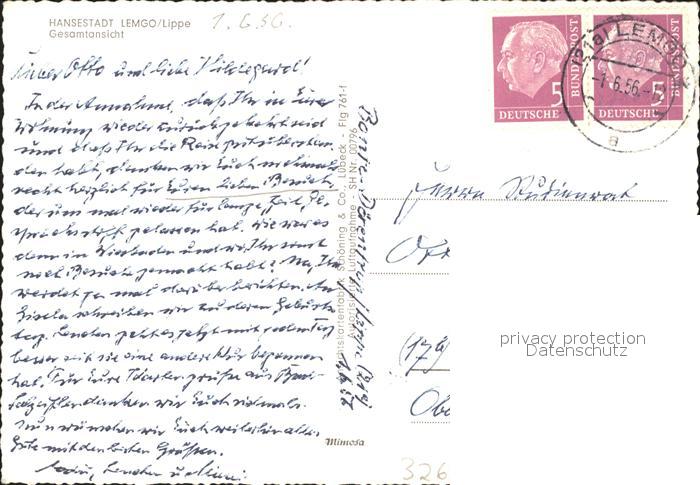 HANSESTADT LEMGO/Lippe
Gesamtansicht
1. 6. 56.
Lieber Otto und liebe Hildegard!
In der Annahme, daß Ihr in Eure
Wohnung wieder zurückgekehrt seid
und daß Ihr die Reise gut überstan-
den habt, danken wir Euch nochmals
recht herzlich für Euren lieben Besuch,
der uns mal wieder für lange Zeit Ge-
sprächsstoff gelassen hat. Wie war es
denn in Wiesbaden und wo Ihr sonst
noch Besuch gemacht habt? Na, Ihr
werdet ja mal darüber berichten. An
Gisela schreiben wir zu deren Geburts-
tag. Lenchen geht es jetzt mit jedem Tag
besser seit sie eine andere Kur begonnen
hat. Für Eure Karten grüße aus
danken wir Euch vielmals.
Nun wünschen wir Euch weiterhin alles
Gute mit den besten Grüßen.
Lenchen u.
Schöning & Co., Lübeck - Flg 761-f
Luftaufnahme - SH Nr. 00796
1.6.56
Mimosa
BUNDESPOST
5
DEUTSCHE
BUNDESPOST
5
DEUTSCHE
(21a) LEMGO
-1.6.56.-
a
Herrn Studienrat
(17b)
326
privacy protection
Datenschutz